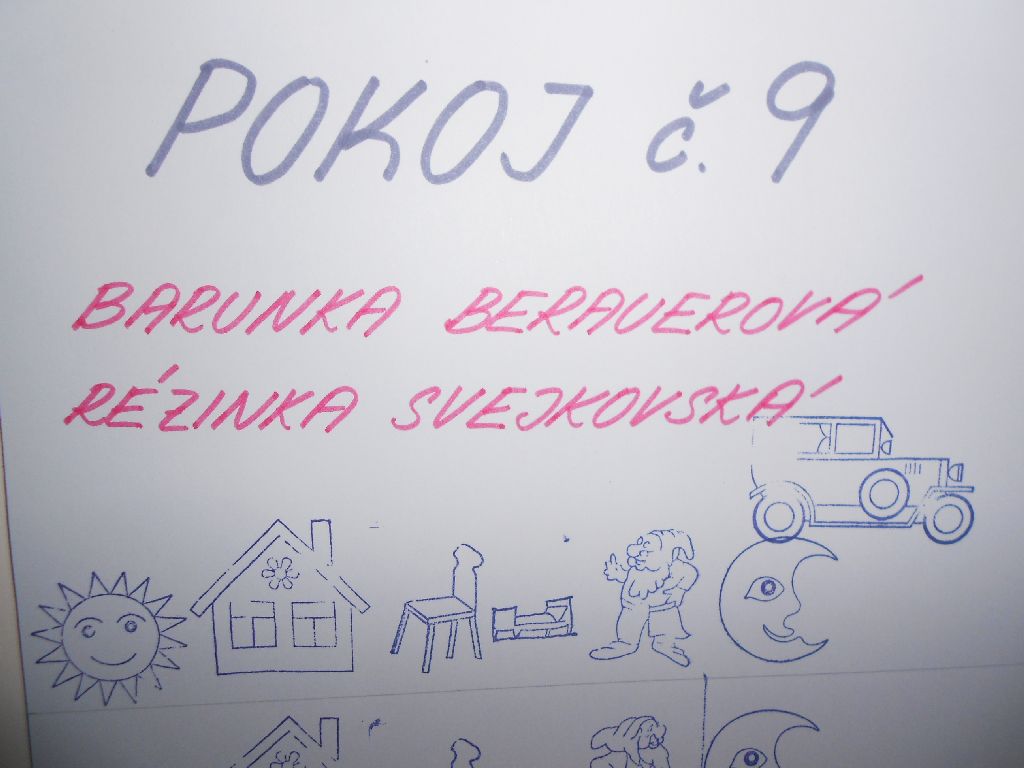 POKOJ č. 9
BARUNKA BERAUEROVÁ
RÉZINKA SVEJKOVSKÁ